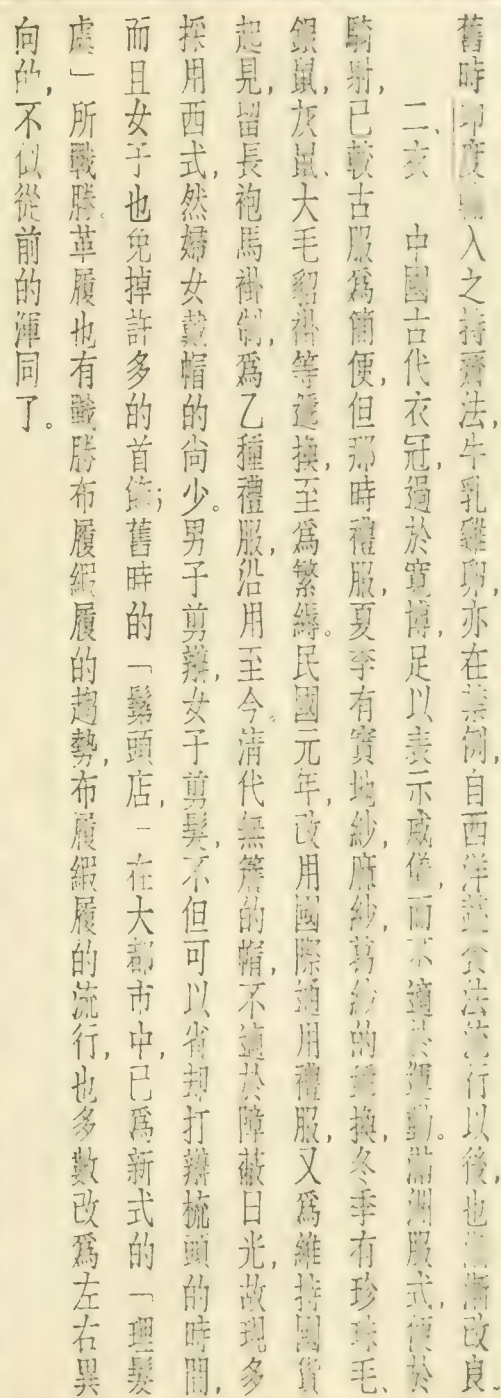 舊時印度輸入之持齋法，牛乳雞卵，亦在禁例，自西洋蔬食法流行以後，也漸改良
二、衣　中國古代衣冠，過於寬博，足以表示威儀，而不適於運動。滿洲服式，便於
騎射，已較古服爲簡便，但那時禮服，夏季有實地紗、麻紗、葛紗的遞換，冬季有珍珠毛、
銀鼠、灰鼠、大毛貂褂等遞換，至爲繁縟。民國元年，改用國際通用禮服，又爲維持國貨
起見，留長袍馬褂制，爲乙種禮服，沿用至今。清代無簷的帽，不適於障蔽日光，故現多
採用西式，然婦女戴帽的尙少。男子剪辮，女子剪髮，不但可以省却打辮梳頭的時間，
而且女子也免掉許多的首飾；舊時的「鬀頭店」在大都市中，已爲新式的「理髮
處」所戰勝。革履也有戰勝布履緞履的趨勢，布履緞履的流行，也多數改爲左右異
向的，不似從前的渾同了。